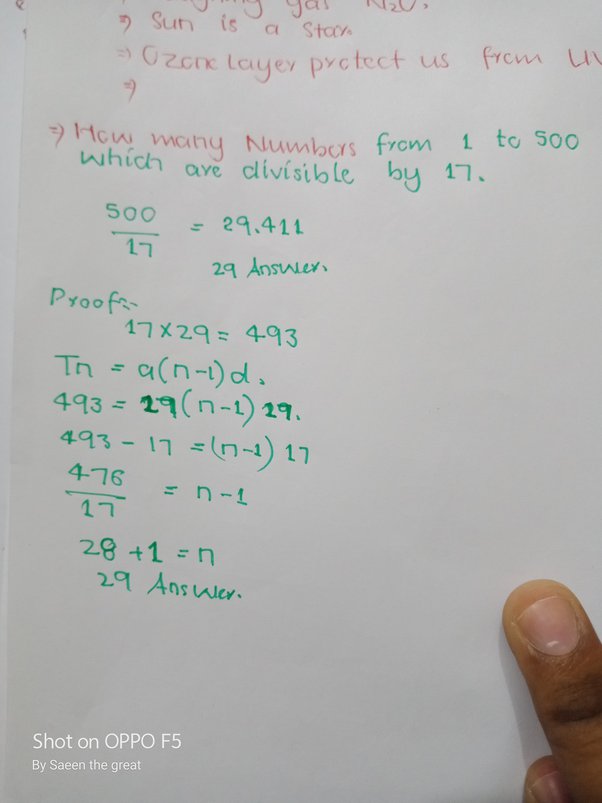 gas N2O.
⇒ Sun is a Star.
⇒ Ozone Layer protect us from UV
⇒
⇒ How many Numbers from 1 to 500
which are divisible by 17.
500/17 = 29.411
29 Answer.
Proof:-
17×29 = 493
Tn = a(n-1)d.
493 = 29(n-1)29.
493 - 17 = (n-1) 17
476/17 = n-1
28 +1 = n
29 Answer.
Shot on OPPO F5
By Saeen the great